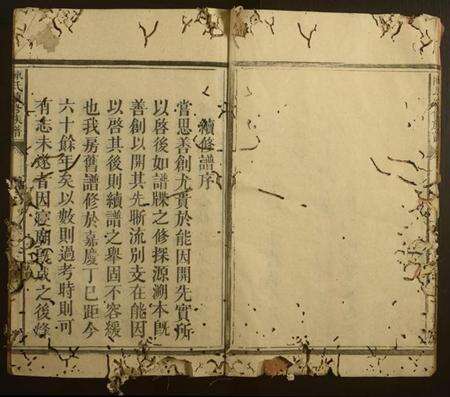 續修譜序
嘗思善創尤貴於能因開先實所
以啓後如譜牒之修探源溯本旣
善創以開其先晰流別支在能因
以啓其後則續譜之舉固不容緩
也我房舊譜修於嘉慶丁巳距今
六十餘年矣以數則過考時則可
有志未遂者因
之後